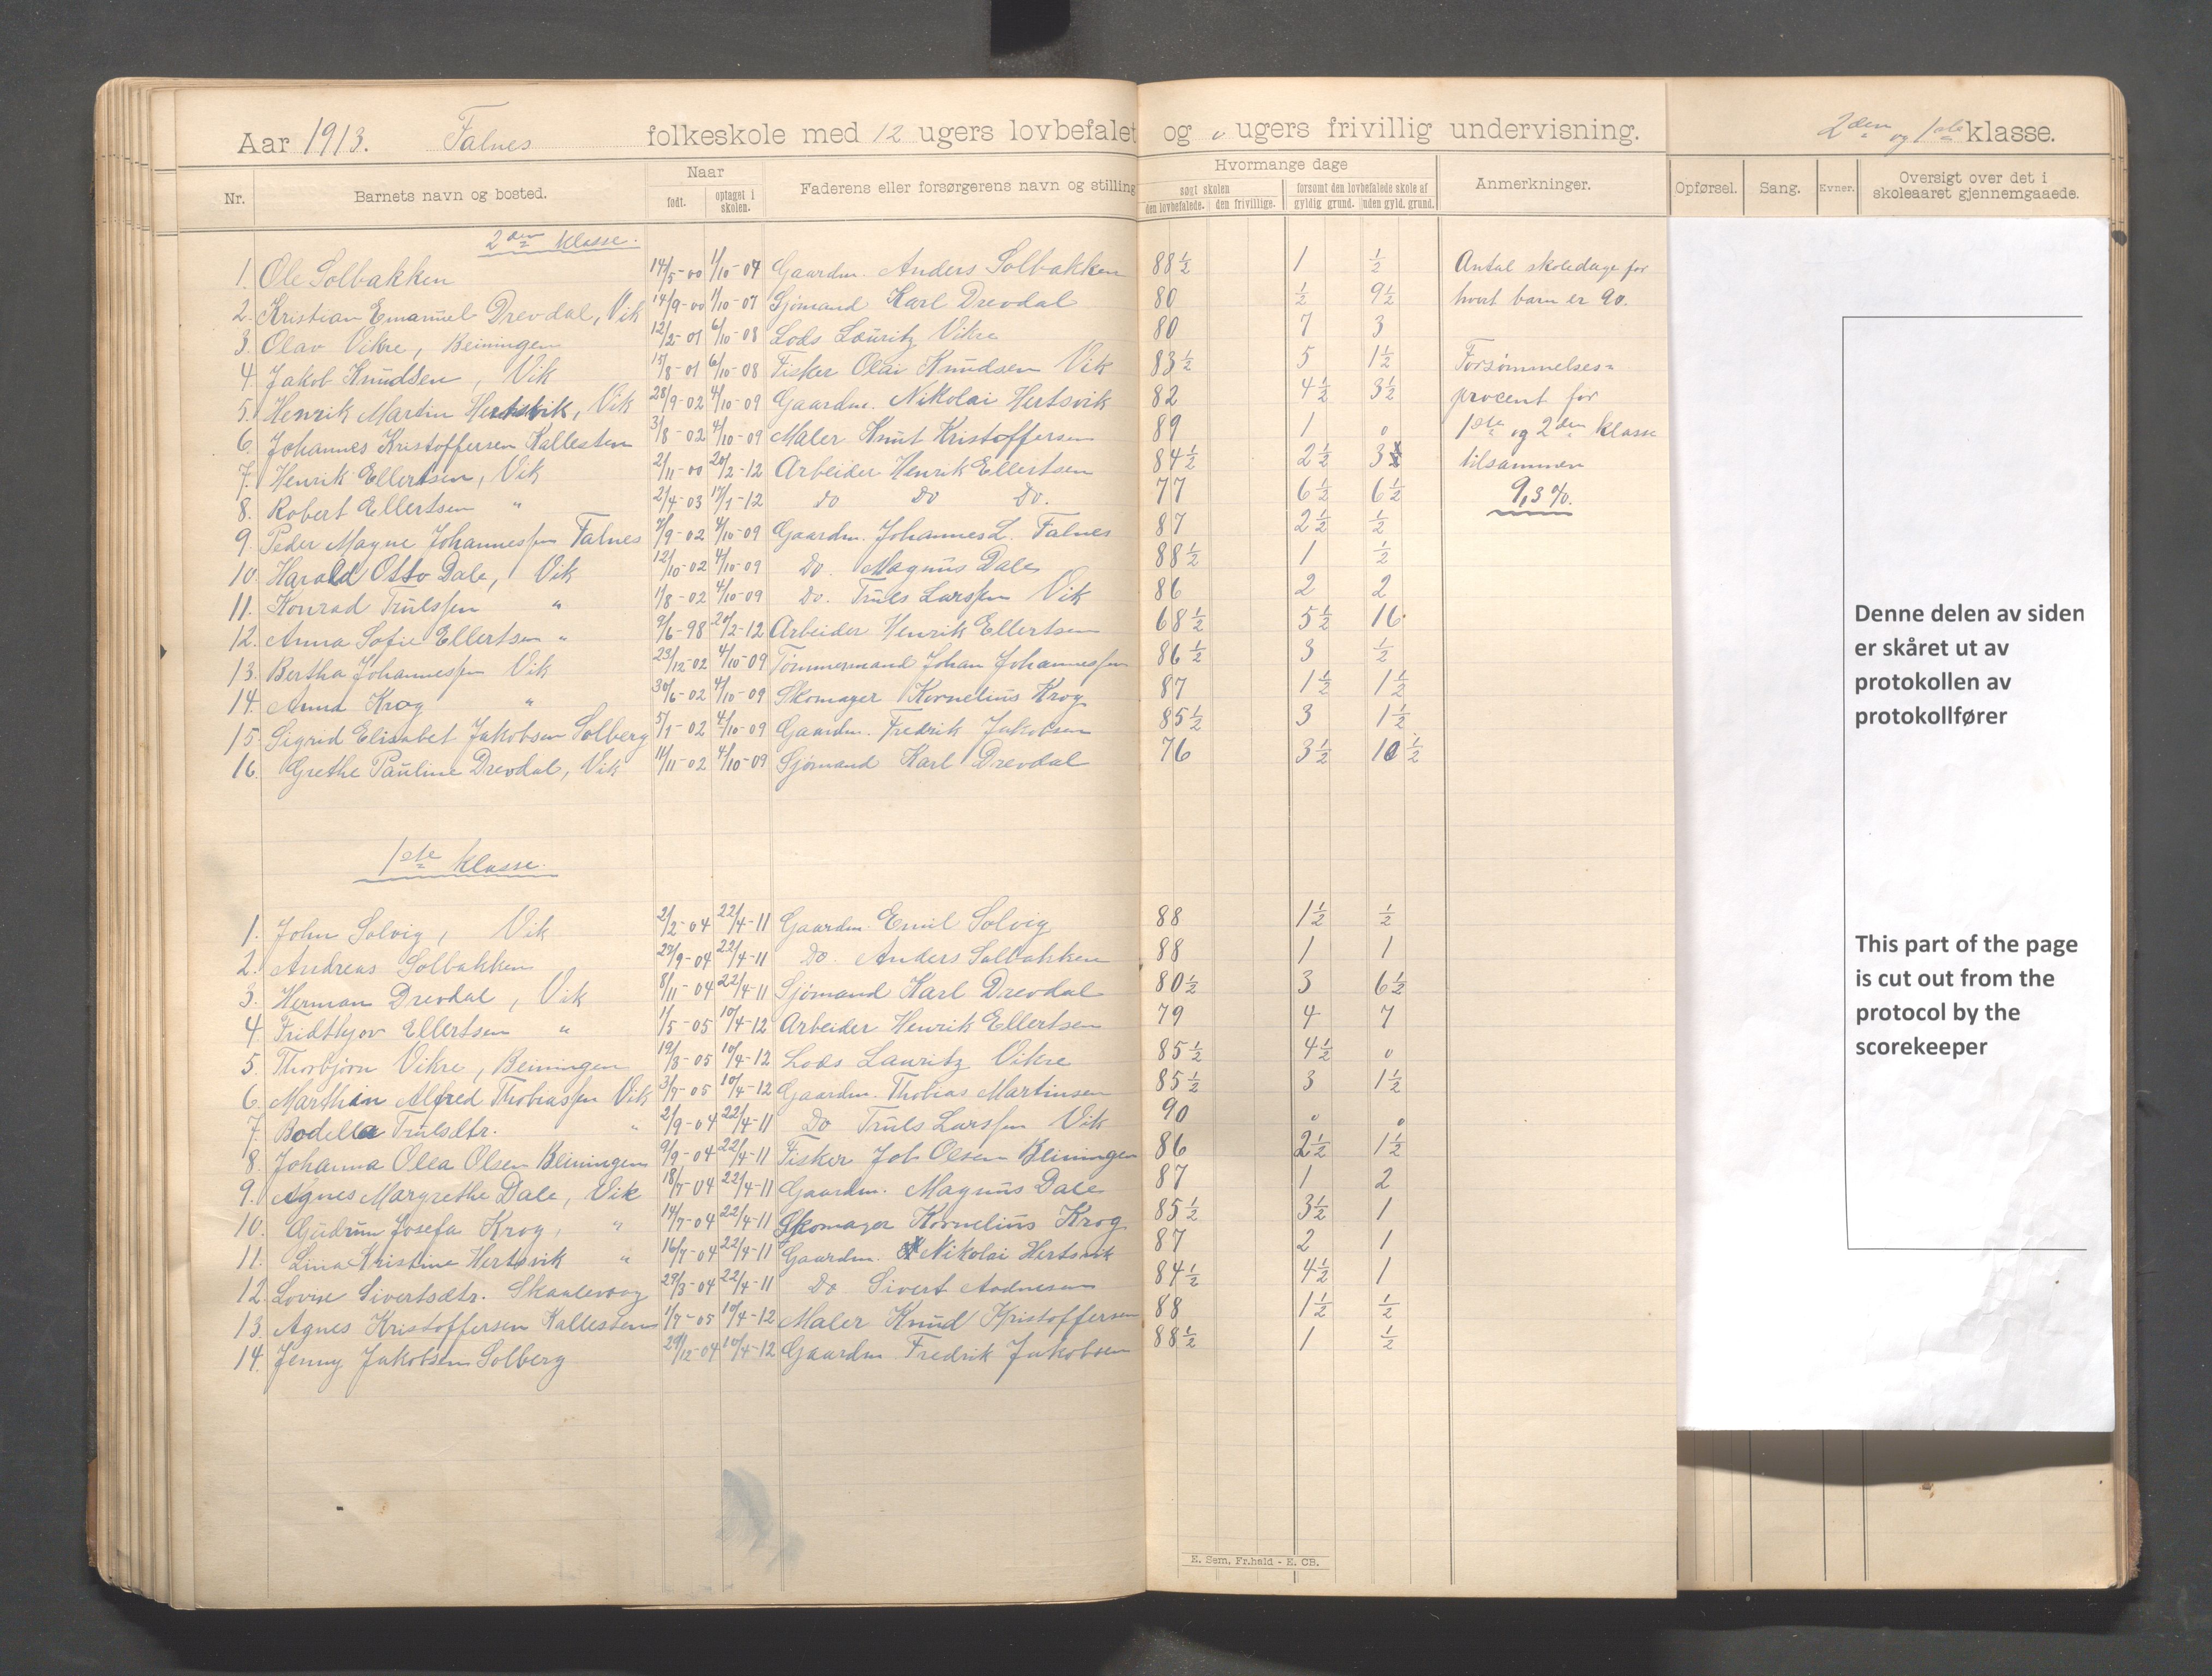 Aar 1913. Falnes folkeskole med 12 ugers lovbefalet og 0 ugers frivillig undervisning. 2den og 1ste klasse.
Nr. Barnets navn og bosted. Naar født. optaget i skolen. Faderens eller forsørgerens navn og stilling Hvormange dage søgt skolen den lovbefalede. den frivillige. forsømt den lovbefalede skole af gyldig grund. uden gyld. grund. Anmerkninger. Opførsel. Sang. Evner. Oversigt over det i skoleaaret gjennemgaaede.
2den klasse.
1. Ole Solbakken 14/5-00 1/10-07 Gaardm. Anders Solbakken 88 1/2 1 1/2 Antal skoledage for
2. Kristian Emanuel Drevdal, Vik 14/9-00 1/10-07 Sjømand Karl Drevdal 80 1/2 9 1/2 hvert barn er 90.
3. Olav Vikre, Beiningen 12/2-01 6/10-08 Lods Lauritz Vikre 80 7 3
4. Jakob Knudsen, Vik 15/8-01 6/10-08 Fisker Olai Knudsen Vik 83 1/2 5 1 1/2 Forsømmelses=
5. Henrik Martin Hertsvik, Vik 28/9-02 4/10-09 Gaardm. Nikolai Hertsvik 82 4 1/2 3 1/2 procent for
6. Johannes Kristoffersen Kallesten 3/8-02 4/10-09 Maler Knut Kristoffersen 89 1 0 1ste og 2den klasse
7. Henrik Ellertsen, Vik 2/11-00 20/2-12 Arbeider Henrik Ellertsen 84 1/2 2 1/2 3 tilsammen
8. Robert Ellertsen " 2/4-03 17/1-12 Do Do Do. 77 6 1/2 6 1/2 9,3 %.
9. Peder Magne Johannessen Falnes 7/9-02 4/10-09 Gaardm. Johannes L. Falnes 87 2 1/2 1/2
10. Harald Otto Dale, Vik 12/10-02 4/10-09 Do. Magnus Dale 88 1/2 1 1/2
11. Konrad Trulssen " 1/8-02 4/10-09 Do. Truls Larssen Vik 86 2 2
12. Anna Sofie Ellertsen " 9/6-98 20/2-12 Arbeider Henrik Ellertsen 68 1/2 5 1/2 16.
13. Bertha Johannessen Vik 23/12-02 4/10-09 Tømmermand Johan Johannessen 86 1/2 3 1/2
14. Anna Krog " 30/6-02 4/10-09 Skomager Kornelius Krog 87 1 1/2 1 1/2
15. Sigrid Elisabet Jakobsen Solberg 5/1-02 4/10-09 Gaardm. Fredrik Jakobsen 85 1/2 3 1 1/2
16. Grethe Pauline Drevdal, Vik 11/11-02 4/10-09 Sjømand Karl Drevdal 76 3 1/2 10 1/2
1ste klasse.
1. John Solvig, Vik 2/2-04 22/4-11 Gaardm. Emil Solvig 88 1 1/2 1/2
2. Andreas Solbakken 29/9-04 22/4-11 Do. Anders Solbakken 88 1 1
3. Herman Drevdal, Vik 8/11-04 22/4-11 Sjømand Karl Drevdal 80 1/2 3 6 1/2
4. Fridthjov Ellertsen " 1/5-05 10/4-12 Arbeider Henrik Ellertsen 79 4 7
5. Thorbjørn Vikre, Beiningen 19/3-05 10/4-12 Lods Lauritz Vikre 85 1/2 4 1/2 0
6. Marthin Alfred Thobiassen Vik 3/7-05 10/4-12 Gaardm. Thobias Martinsen 85 1/2 3 1 1/2
7. Bodella Trulsdtr. " 2/9-04 22/4-11 Do Truls Larssen Vik 90 0 0
8. Johanna Olea Olsen Beiningen 9/9-04 22/4-11 Fisker Job Olsen Beiningen 86 2 1/2 1 1/2
9. Agnes Margrethe Dale, Vik 18/7-04 22/4-11 Gaardm. Magnus Dale 87 1 2
10. Gudrun Josefa Krog, " 14/7-04 22/4-11 Skomager Kornelius Krog 85 1/2 3 1/2 1
11. Lina Kristine Hertsvik " 16/7-04 22/4-11 Gaardm. Nikolai Hertsvik 87 2 1
12. Lovise Sivertsdtr. Skaalevaag 29/3-04 22/4-11 Do Sivert Aadnesen 84 1/2 4 1/2 1
13. Agnes Kristoffersen Kallesten 1/7-05 10/4-12 Maler Knud Kristoffersen 88 1 1/2 1/2
14. Jenny Jakobsen Solberg 29/12-04 10/4-12 Gaardm Fredrik Jakobsen 88 1/2 1 1/2
E. Sem, Fr.hald - E. CB.
Denne delen av siden
er skåret ut av
protokollen av
protokollfører
This part of the page
is cut out from the
protocol by the
scorekeeper